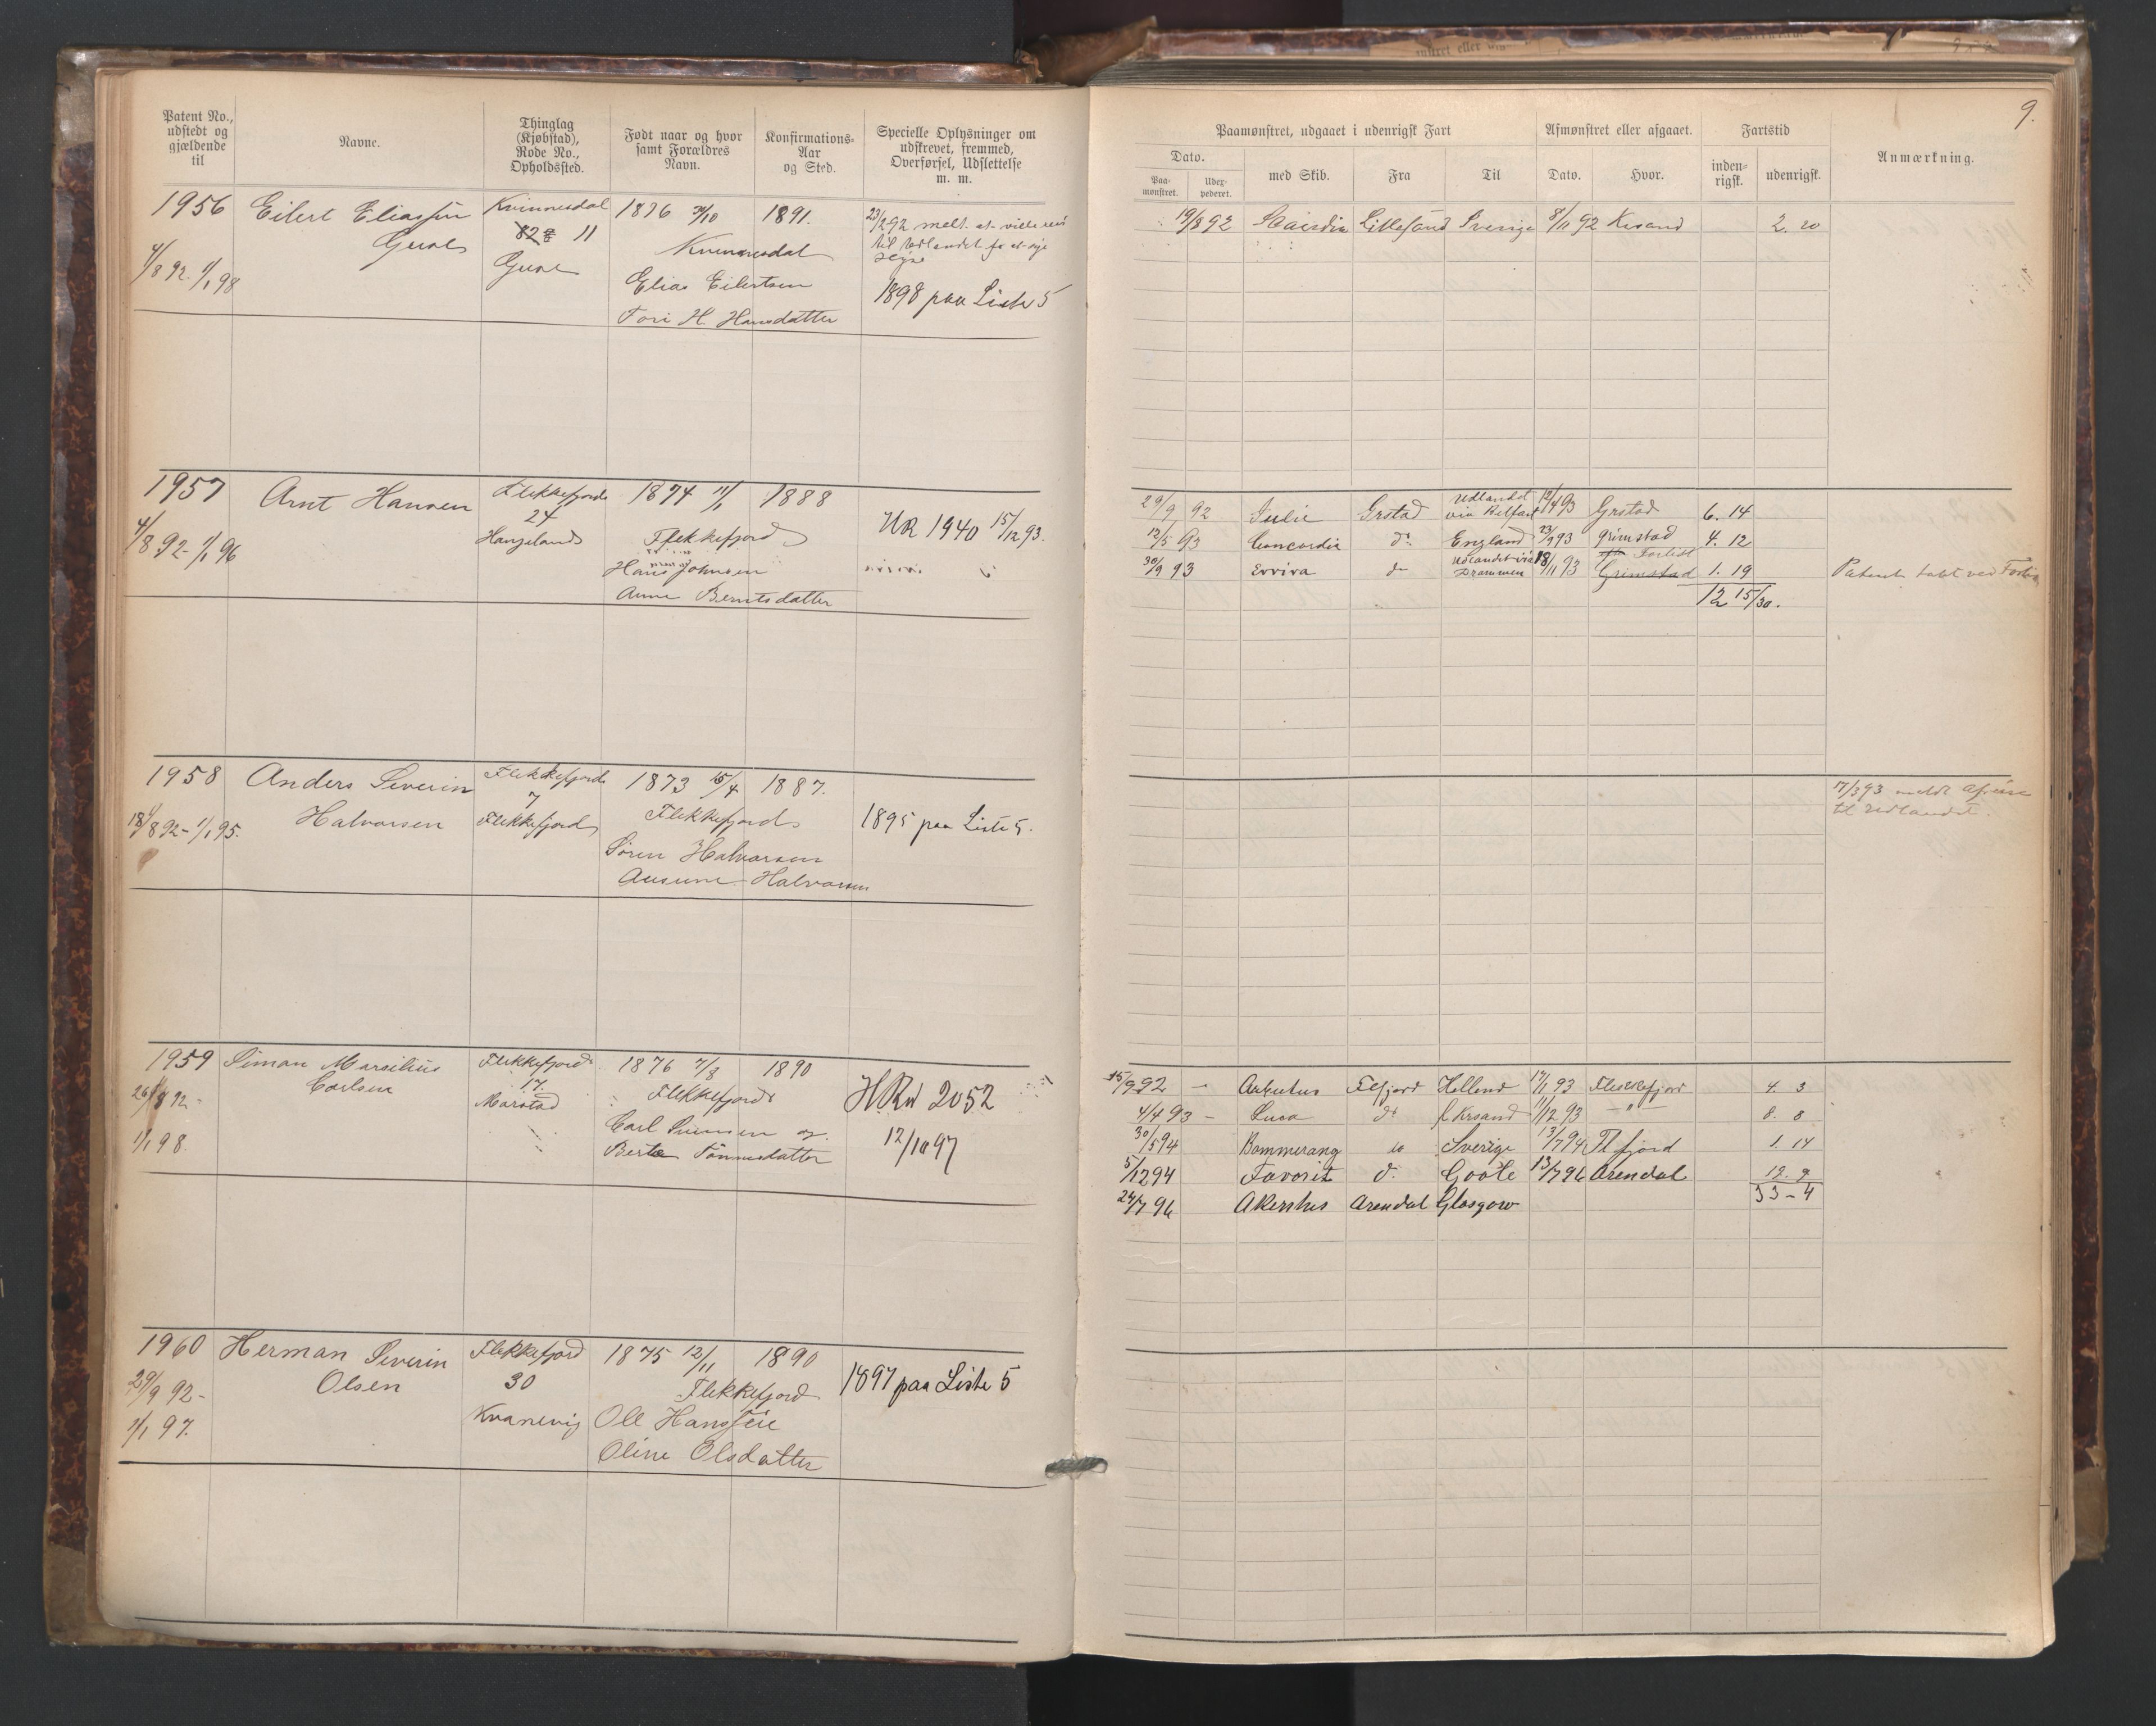 Patent No., udstedt og gjældende til
Navne.
Thinglag (Kjøbstad), Rode No., Opholdssted.
Født naar og hvor samt Forældres Navn.
Konfirmations-Aar og Sted.
Specielle Oplysninger om udskrevet, fremmed, Overførsel, Udslettelse m. m.
1956 Eilert Eliassen Kvinnesdal 1876 1891.
11
Kvinnesdal
4/8 92. 1/1 98
Elias Eilertsen
1898 paa Liste 5
Tori H. Hansdatter
1957 Arnt Hansen Flekkefjord 1874 11/1 1888
24
4/8 92 - 1/1 96 Hangeland Flekkefjord HR 1940 15/12 93.
Hans Johnsen
Anne Berntsdatter
1958 Anders Severin Flekkefjord 1873 15/4 1887.
7
18/8 92 - 1/1 95. Halvorsen Flekkefjord Flekkefjord 1895 paa Liste 5.
Søren Halvorsen
Halvorsen
1959 Siman Marsilius Flekkefjord 1876 7/8 1890
Carlsen 17.
26/8 92 - Marstad Flekkefjord HRul 2052
Carl og
1/1 98. Berta Tønnesdatter 12/10 97
1960 Herman Severin Flekkefjord 1875 12/11 1890
Olsen 30
29/9 92 - Flekkefjord 1897 paa Liste 5
1/1 97. Kvanevig Ole Hansseie
Oline Olsdatter
9.
Paamønstret, udgaaet i udenrigsk Fart
Afmønstret eller afgaaet.
Fartstid
Anmærkning.
Dato.
Paa-mønstret.
Udex-pederet.
med Skib.
Fra
Til
Dato.
Hvor.
inden-rigsk.
udenrigsk.
19/8 92 Lillesand Sverige 8/11 92 Krsand 2. 20
29/9 92 Julie Grstad Udlandet via Belfast 12/4 93 Grstad 6. 14
12/5 93 Concordia do England 23/9 93 Grimstad 4. 12
30/9 93 Evviva do Udlandet via Drammen 18/11 93 Grimstad Forlist 1. 19 Patent tabt ved Forlis
12 15/30.
7/3 93 meldt Afreise
til Udlandet.
15/9 92 - Flfjord Holland 17/1 93 Flekkefjord 4. 3
4/4 93 - Luca do f Krsand 11/12 93 - " - 8. 8
30/5 94 Bommerang do Sverige 13/7 94 Flfjord 1. 14
5/12 94 Favorit do Goole 13/7 96 Arendal 19. 9
33 - 4
24/7 96 Akershus Arendal Glasgow